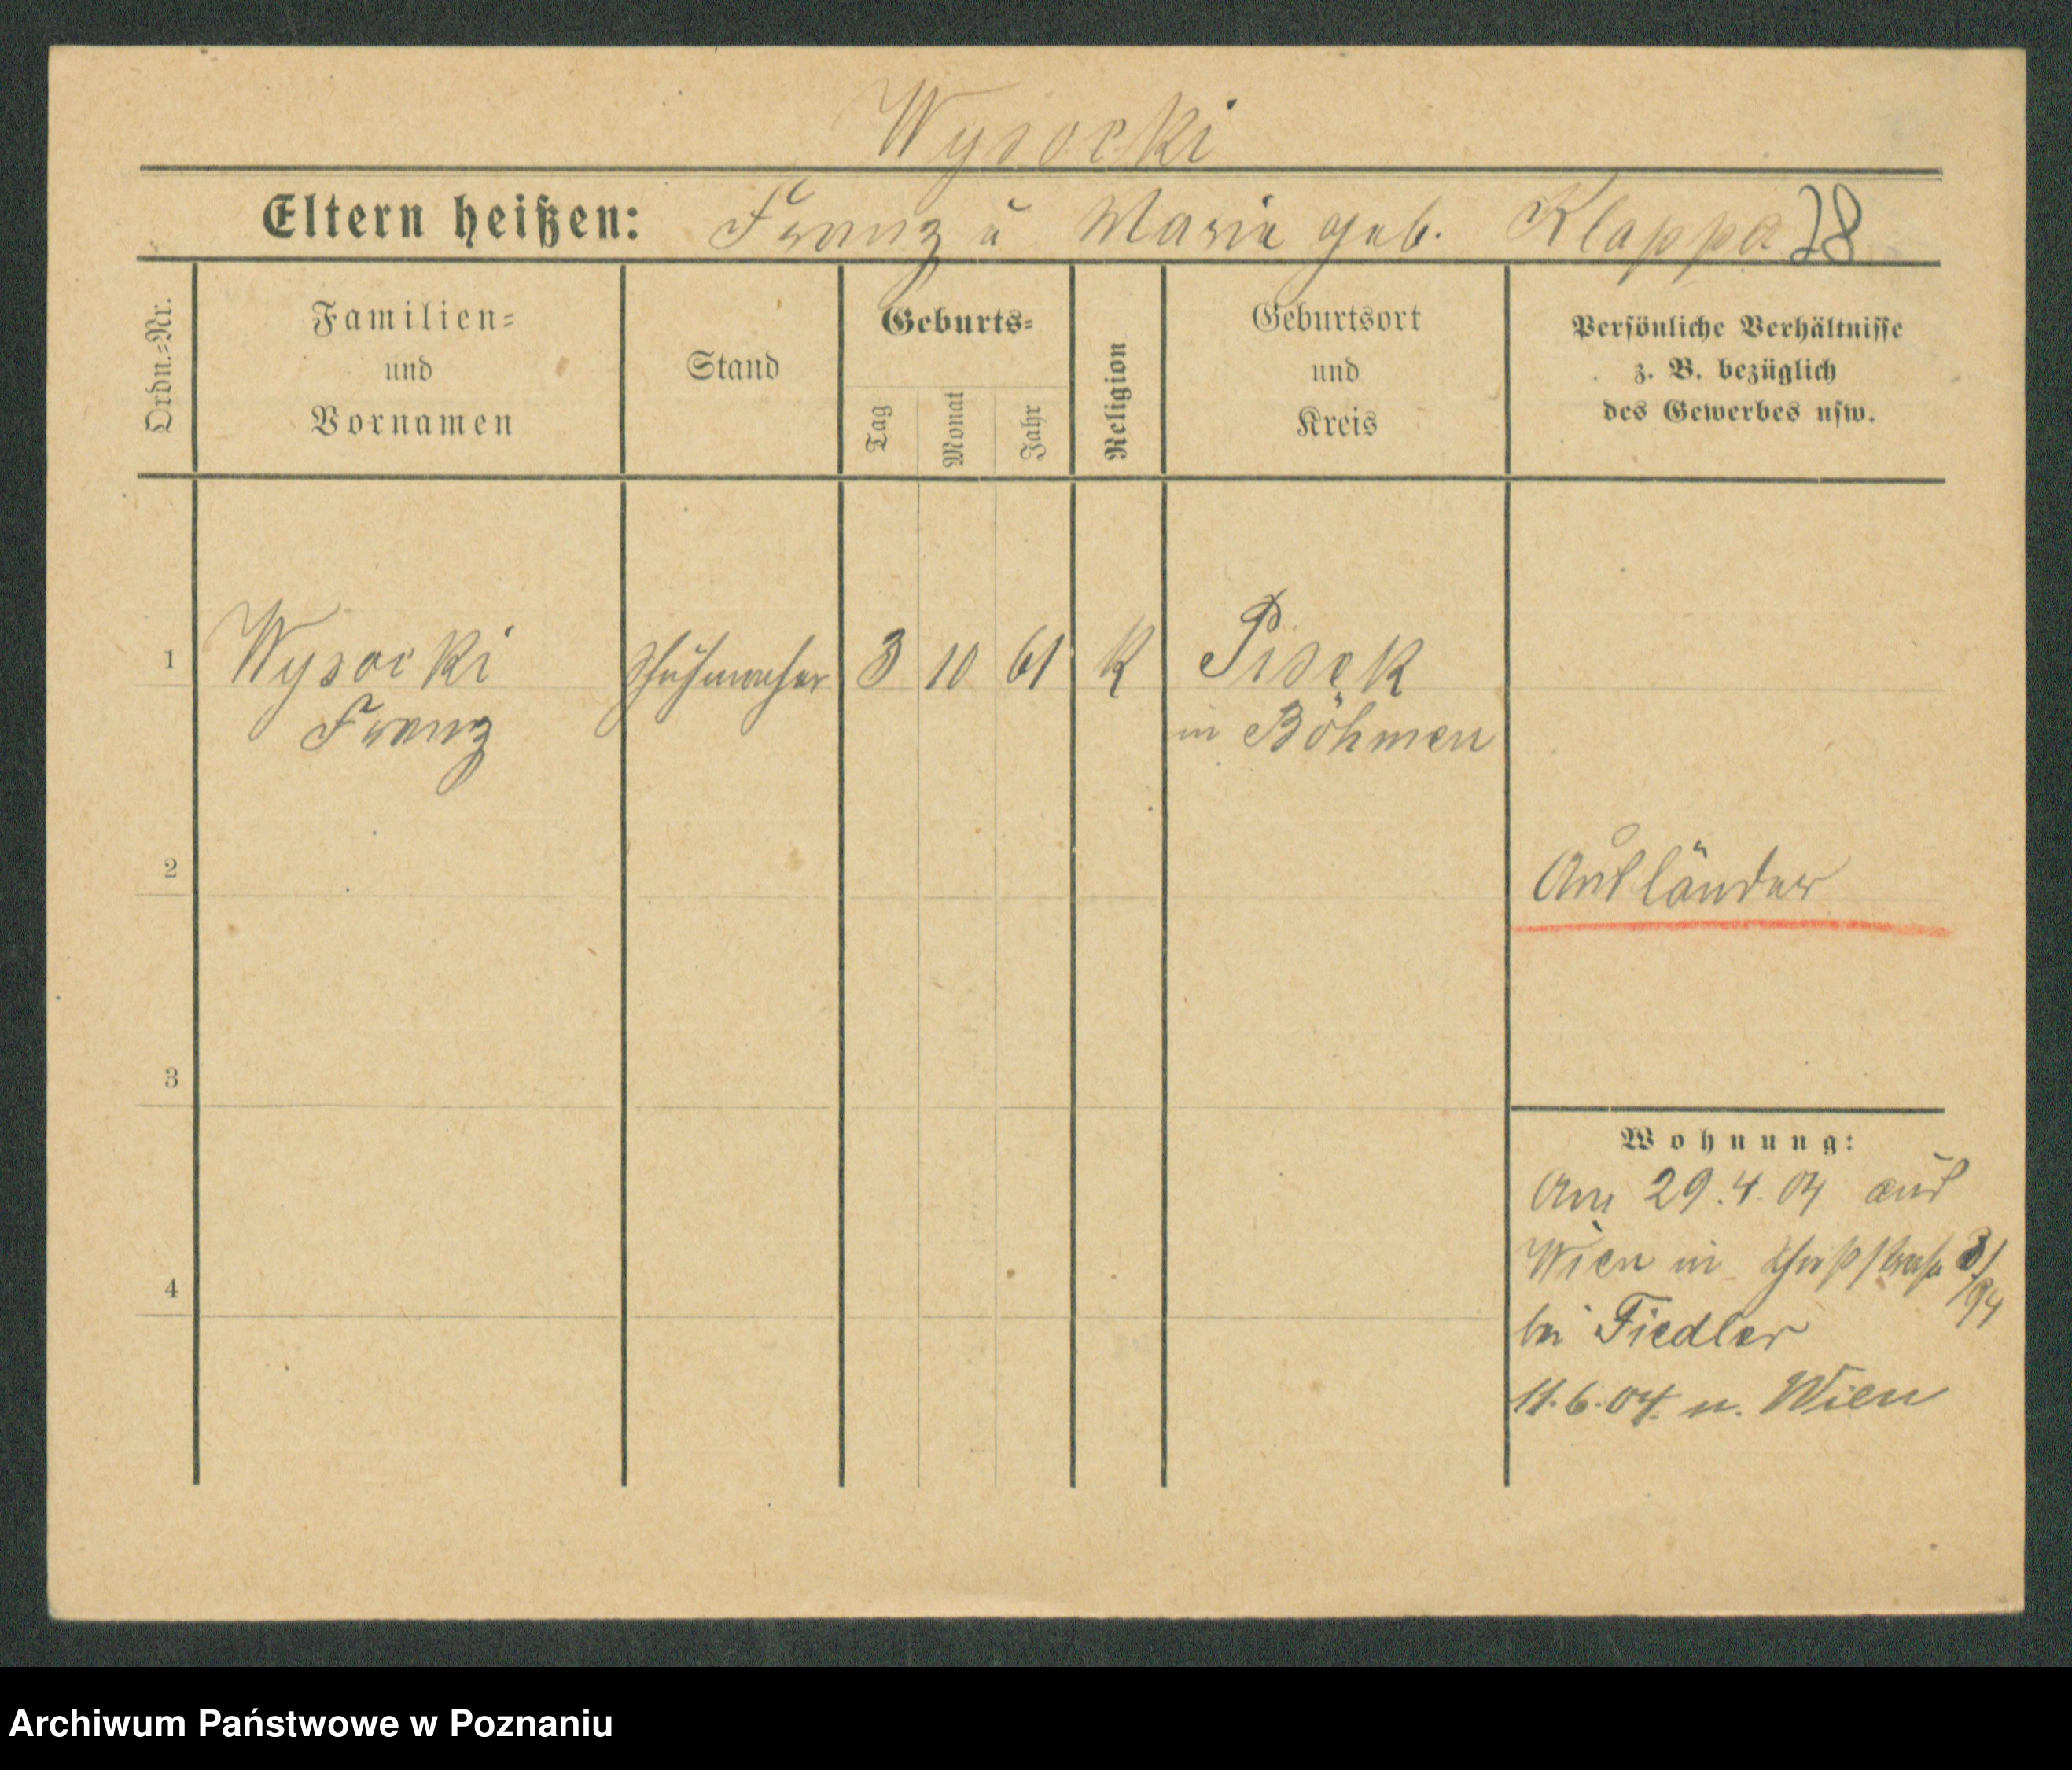 Wysocki
Eltern heißen: Franz u Marie geb. Klappa 78
Ordn.=Nr.
Familien=
und
Vornamen
Stand
Geburts=
Tag
Monat
Jahr
Religion
Geburtsort
und
Kreis
Persönliche Verhältnisse
z. B. bezüglich
des Gewerbes usw.
1 Wysocki Schuhmacher 3 10 61 K Pisek
Franz in Böhmen
2 Ausländer
3
Wohnung:
Am 29.4.04 aus
4 Wien in 31/94
bei Fiedler
11.6.04. n. Wien
Archiwum Państwowe w Poznaniu